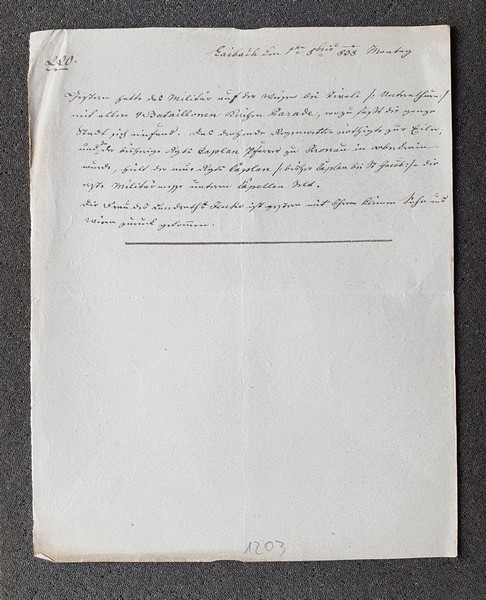 220.
Laibach den 1ten 8bris 838 Montag
Gestern hatte das Militär auf der Wiese bei Tivoli /: Unterthurn :/
mit allen 4 Bataillonen Kirchen Parade, wozu sich die ganze
Stadt sich einfand. Das drohende Regenwetter nöthigte zur Eile,
und der bisherige Rgts Caplan Pfarrer zu Kronau in
wurde, hielt der neue Rgts Caplan /: bisher Caplan bei St Jacob :/ die
erste Militärmesse unterm Capellen Zelt.
Die Frau des Landraths ist gestern mit ihrem kleinen Sohn aus
Wien zurück gekommen.
1203